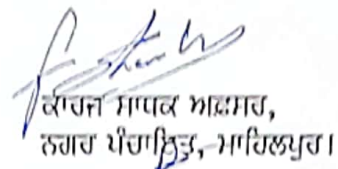 ਕਾਰਜ ਸਾਧਕ ਅਫ਼ਸਰ,
ਨਗਰ ਪੰਚਾਇਤ, ਮਾਹਿਲਪੁਰ।